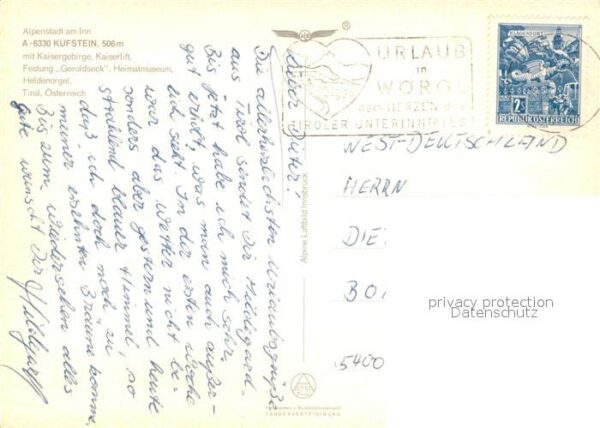 Alpenstadt am Inn
A-6330 KUFSTEIN, 506 m
mit Kaisergebirge, Kaiserlift,
Festung „Geroldseck", Heimatmuseum,
Heldenorgel.
Tirol, Österreich
Lieber Dieter!
Die allerherzlichsten Urlaubsgrüße
aus Tirol sendet Dir Hildegard.
Bis jetzt habe ich mich sehr
gut erholt, was man auch äußer-
lich sieht. In der ersten Woche
war das Wetter nicht be-
sonders aber gestern und heute
strahlend blauer Himmel, so
daß ich doch noch zu
meiner ersehnten Bräune komme.
Bis zum Wiedersehen alles
gute wünscht Dir
Hildegard
Alpine Luftbild Innsbruck
®
URLAUB
in
WÖRGL
DEM HERZEN DES
TIROLER UNTERINNTALES
KLAGENFURT
2S
REPUBLIK ÖSTERREICH
WEST-DEUTSCHLAND
HERRN
DIE
BO
5400
privacy protection
Datenschutz
LANDESVERTEIDIGUNG